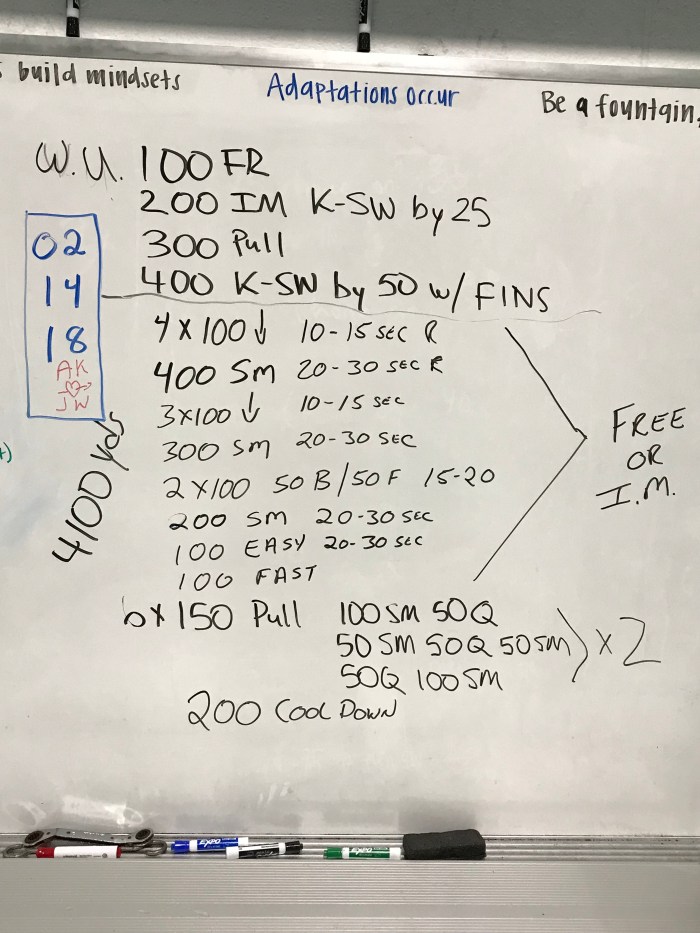 build mindsets
Adaptations occur
Be a fountain.
W.U. 100 FR
200 IM K-SW by 25
300 Pull
400 K-SW by 50 w/ FINS
02
14
18
AK
JW
4100 yds
4 x 100 ↓ 10-15 SEC R
400 Sm 20-30 SEC R
3x100 ↓ 10-15 SEC
300 SM 20-30 SEC
2 x 100 50 B/50 F 15-20
200 SM 20-30 SEC
100 EASY 20-30 SEC
100 FAST
FREE
OR
I.M.
6x 150 Pull 100 SM 50Q
50 SM 50Q 50 SM
50Q 100 SM
x 2
200 COOL DOWN
EXPO
EXPO